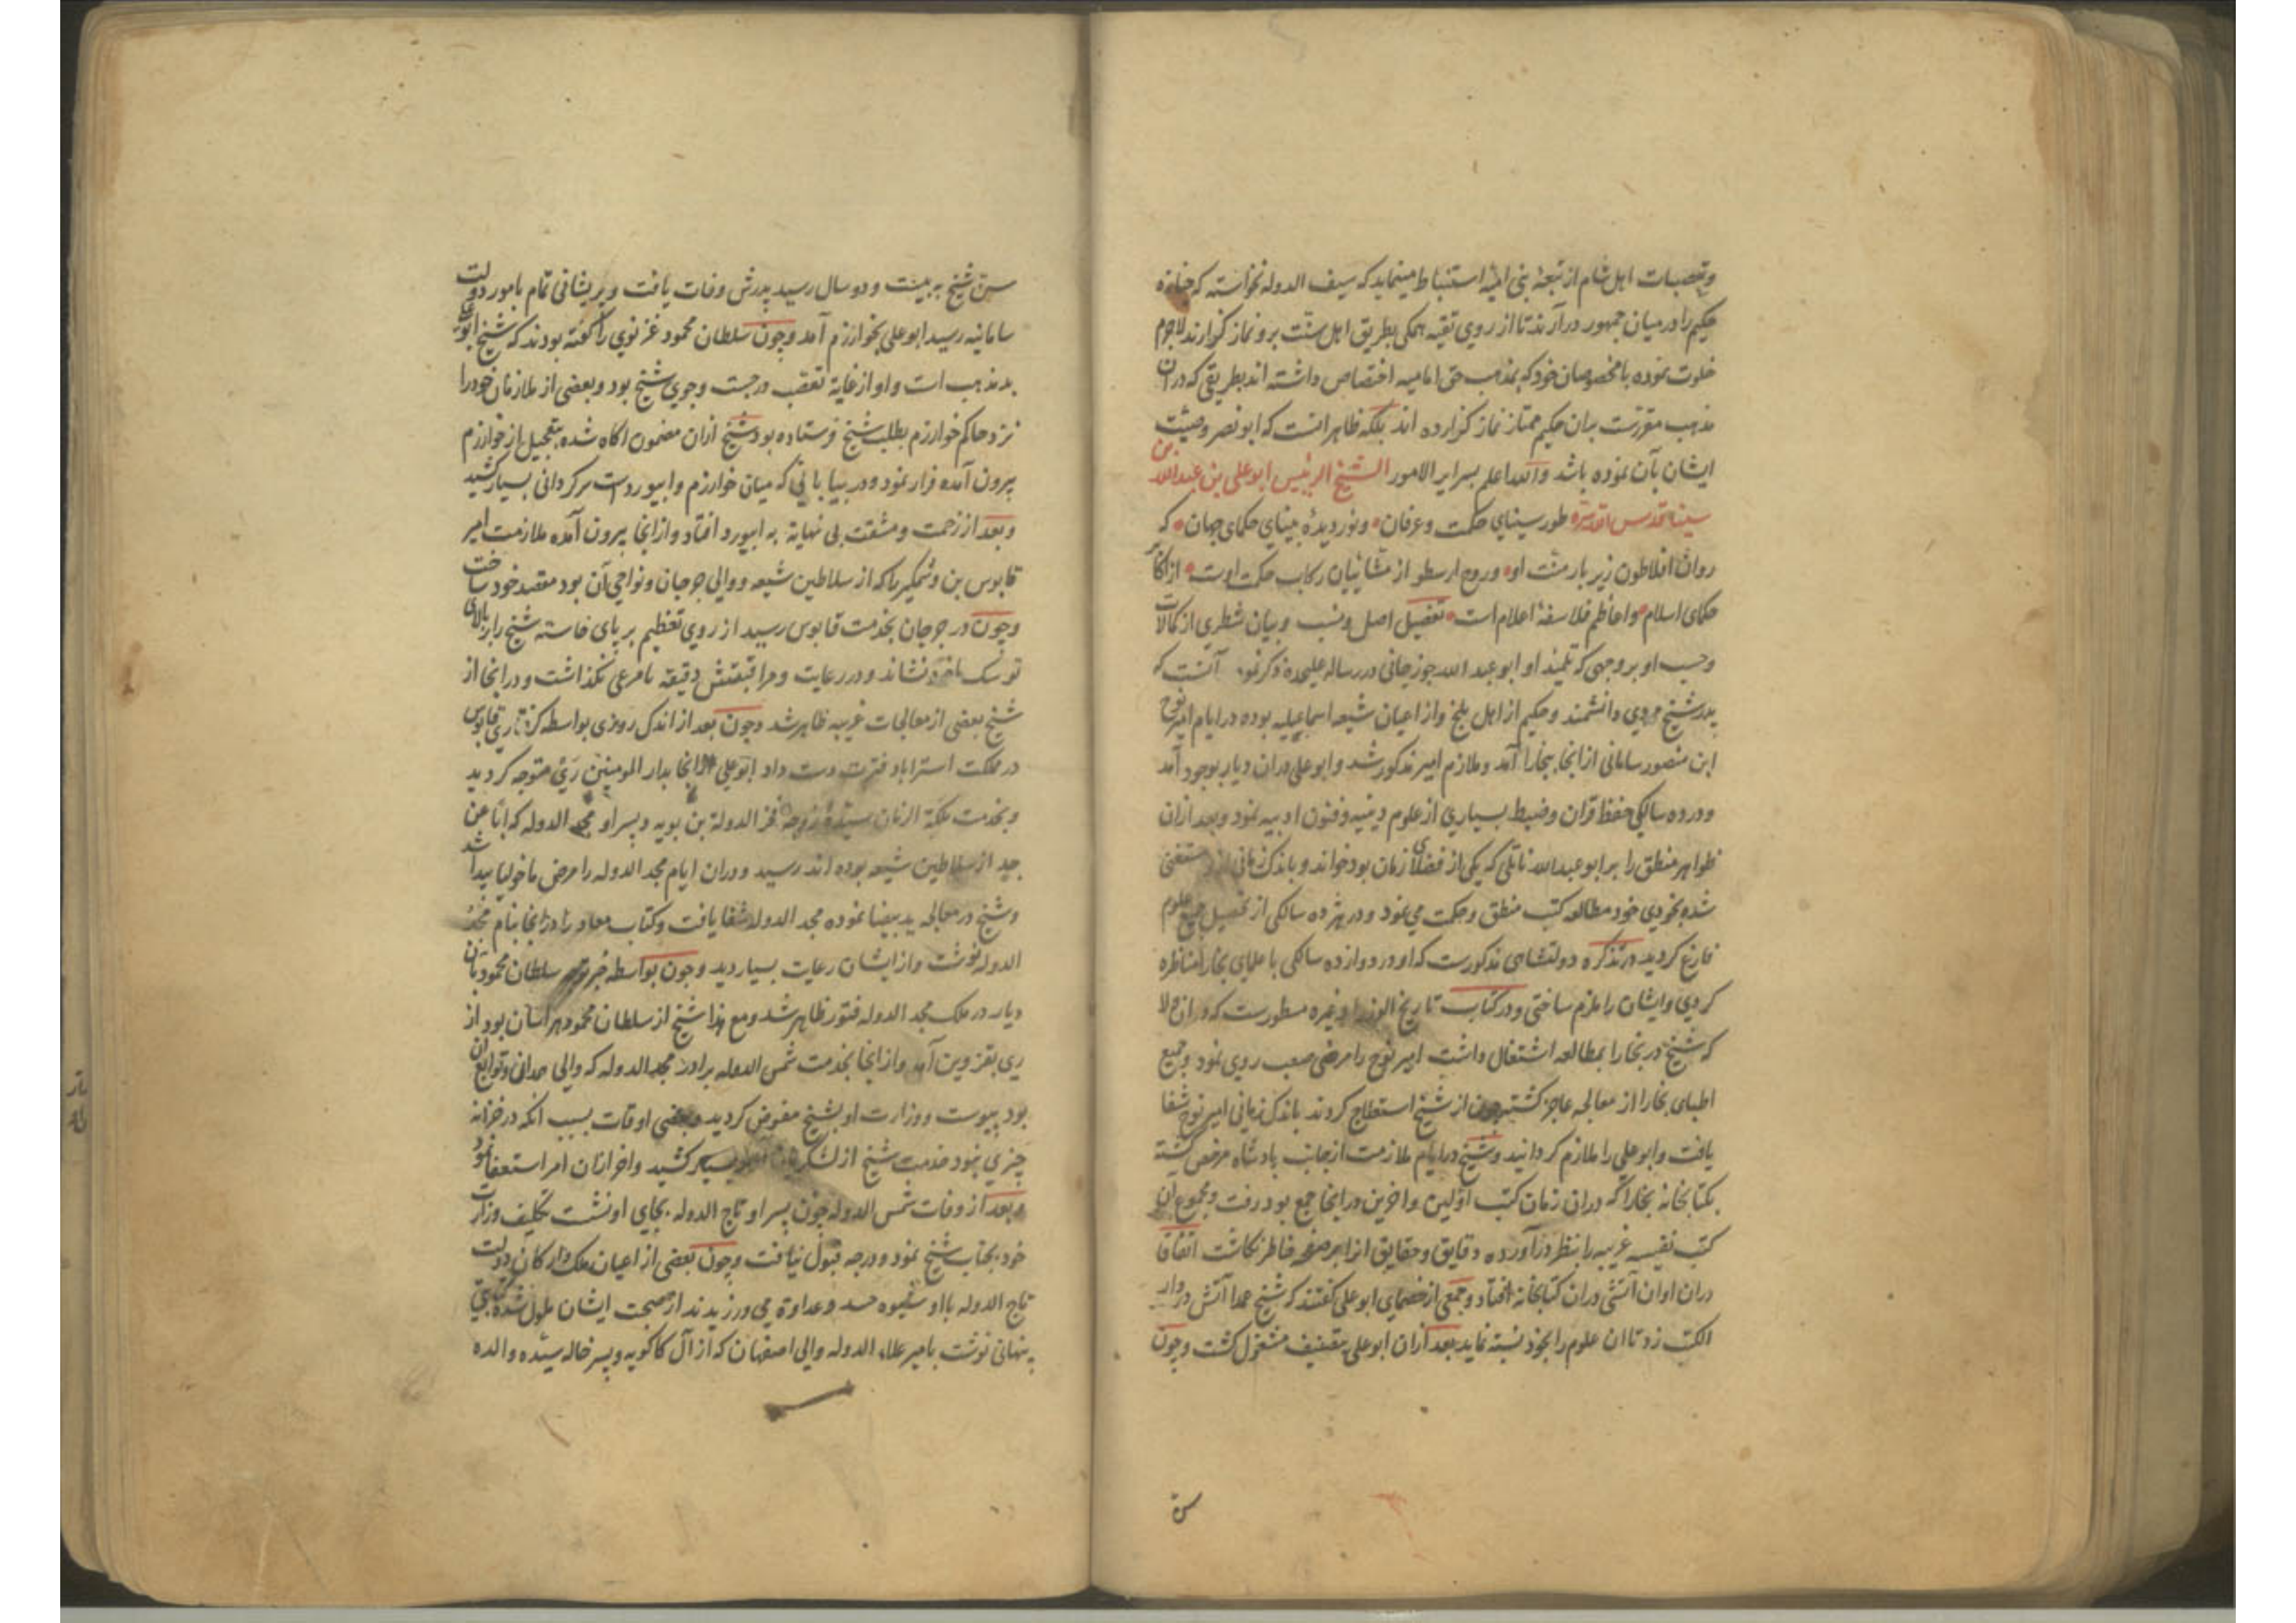 وتعصبات اهل شام از تبعهٔ بنی امیه استنباط مینماید که سیف الدوله نخواسته که جنازه
حکیم را در میان جمهور در آرند تا از روی تقیه همکی بطریق اهل سنت برو نماز کزارند لاجرم
خلوت نموده با مخصوصان خود که بمذهب حق امامیه اختصاص داشته اند بطریقی که در آن
مذهب مقررست بران حکیم ممتاز نماز کزارده اند بلکه ظاهر انست که ابو نصر وصیت
ایشان بآن نموده باشد والله اعلم بسرایر الامور الشیخ الرئیس ابو علی بن عبدالله بن
سینا قدس الله سره طور سینای حکمت وعرفان ونور دیدهٔ بینای حکمای جهان که
روان افلاطون زیر بار منت او وروح ارسطو از مشائیان رکاب حکمت اوست از اکابر
حکمای اسلام واعاظم فلاسفهٔ اعلام است تفصیل اصل ونسب وبیان شطری از کمالات
وحسب او بر وجهی که تلمیذ او ابو عبد الله جوزجانی در رساله علیحده ذکر نموده آنست که
پدر شیخ مردی دانشمند وحکیم از اهل بلخ واز اعیان شیعه اسماعیلیه بوده در ایام امیر نوح
ابن منصور سامانی از انجا ببخارا آمد وملازم امیر مذکور شد وابو علی دران دیار بوجود آمد
ودر ده سالکی حفظ قران وضبط بسیاری از علوم دینیه وفنون ادبیه نمود وبعد ازان
ظواهر منطق را بر ابو عبدالله ناتلی که یکی از فضلای زمان بود خواند وباندک زمانی از و مستغنی
شده بخودی خود مطالعه کتب منطق وحکمت می نمود ودر هژده سالکی از تحصیل جمیع علوم
فارغ کردید در تذکره دولتشاهی مذکورست که او در دوازده سالکی با علمای بخارا مناظره
کردی وایشان را ملزم ساختی ودر کتاب تاریخ الوزرا وغیره مسطورست که دران حالا
که شیخ در بخارا بمطالعه اشتغال داشت امیر نوح را مرضی صعب روی نمود وجمیع
اطبای بخارا از معالجه عاجز کشته چون از شیخ استعلاج کردند باندک زمانی امیر نوح شفا
یافت وابو علی را ملازم کردانید وشیخ در ایام ملازمت از جانب پادشاه مرخص کشته
بکتابخانه بخارا که دران زمان کتب اولین واخرین در انجا جمع بود رفت ومجموع ان
کتب نفیسه غریبه را بنظر در آورده دقایق وحقایق انرا بر صفحه خاطر نکاشت اتفاقا
دران اوان آتشی دران کتابخانه افتاد وجمعی از خصمای ابو علی کفتند که شیخ عمدا آتش در دار
الکتب زد تا ان علوم را بخود نسبته نماید بعد ازان ابو علی بتصنیف مشغول کشت وچون
سن
سن شیخ به بیست ودو سال رسید پدرش وفات یافت وپریشانی تمام بامور دولت
سامانیه رسید ابو علی بخوارزم آمد وچون سلطان محمود غزنوی را کفته بودند که شیخ ابو علی
بد مذهب است واو از غایة تعصب در جست وجوی شیخ بود وبعضی از ملازمان خود را
نزد حاکم خوارزم بطلب شیخ فرستاده بود شیخ ازان مضمون اکاه شده بتعجیل از خوارزم
بیرون آمده فرار نمود ودر بیابانی که میان خوارزم وابیوردست سرکردانی بسیار کشید
وبعد از زحمت ومشقت بی نهایة به ابیورد افتاد واز انجا بیرون آمده ملازمت امیر
قابوس بن وشمکیر را که از سلاطین شیعه ووالی جرجان ونواحی آن بود مقصد خود ساخت
وچون در جرجان بخدمت قابوس رسید از روی تعظیم بر پای خاسته شیخ را بر بالای
توشک خود نشاند ودر رعایت ومراقبتش دقیقه نامرعی نکذاشت ودر انجا از
شیخ بعضی از معالجات غریبه ظاهر شد وچون بعد از اندک روزی بواسطه کرفتاری قابوس
در مملکت استراباد فترت دست داد ابو علی از انجا بدار المومنین ری متوجه کردید
وبخدمت ملکة الزمان سیده زوجه فخر الدولة بن بویه وپسر او مجد الدوله که ابا عن
جد از سلاطین شیعه بوده اند رسید ودران ایام مجد الدوله را مرض ماخولیا پیدا شد
وشیخ در معالجه ید بیضا نموده مجد الدوله شفا یافت وکتاب معاد را در انجا بنام مجد
الدوله نوشت واز ایشان رعایت بسیار دید وچون بواسطه خبر توجه سلطان محمود بان
دیار در ملک مجد الدوله فتور ظاهر شد ومع هذا شیخ از سلطان محمود هراسان بود از
ری بقزوین آمد واز انجا بخدمت شمس الدوله برادر مجد الدوله که والی همدان وتوابع ان
بود پیوست ووزارت او بشیخ مفوض کردید وبعضی اوقات بسبب انکه در خزانه
چیزی نبود خدمت شیخ از لشکریان بسیار کشید واخر ازان امر استعفا نمود
وبعد از وفات شمس الدوله چون پسر او تاج الدوله بجای او نشست تکلیف وزارت
خود بجناب شیخ نمود ودرجه قبول نیافت وچون بعضی از اعیان ملک وارکان دولت
تاج الدوله با او شیوه حسد وعداوة می ورزیدند از صحبت ایشان ملول شده کتابتی
پنهانی نوشت بامیر علاء الدوله والی اصفهان که از آل کاکویه وپسر خاله سیده والده